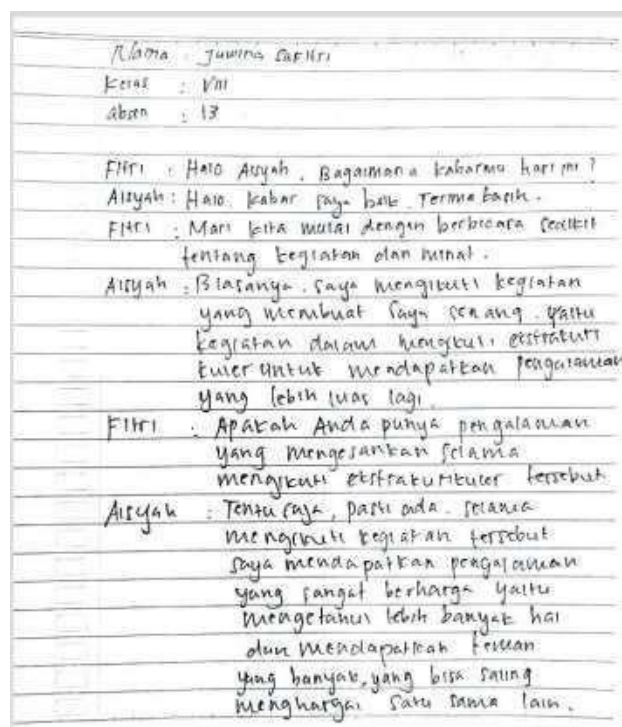 Nama : Juwina Safitri
Kelas : VIII
Absen : 13
Fitri : Halo Aisyah. Bagaimana kabarmu hari ini?
Aisyah : Halo. Kabar saya baik. Terima kasih.
Fitri : Mari kita mulai dengan berbicara sedikit
tentang kegiatan dan minat.
Aisyah : Biasanya. saya mengikuti kegiatan
yang membuat saya senang. yaitu
kegiatan dalam mengikuti ekstrakuri
kuler untuk mendapatkan pengalaman
yang lebih luas lagi.
Fitri : Apakah Anda punya pengalaman
yang mengesankan selama
mengikuti ekstrakurikuler tersebut
Aisyah : Tentu saja, pasti ada. selama
mengikuti kegiatan tersebut
saya mendapatkan pengalaman
yang sangat berharga yaitu
mengetahui lebih banyak hal
dan mendapatkan teman
yang banyak, yang bisa saling
menghargai satu sama lain.